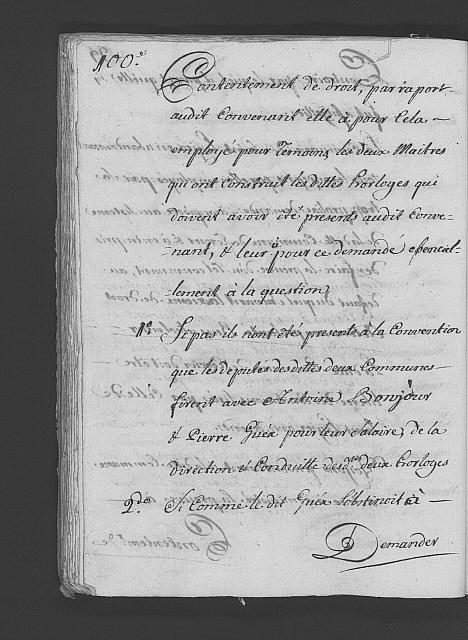 100.
Contentement de droit, par raport
audit Convenant elle à pour Cela
employe pour Temoins, les deux Maitres
qui ont Construit les dittes horloges qui
doivent avoir été presents audit Conve-
-nant, & leur à pour ce demande essencial-
-lement à la question
1º Si pas ils n'ont été presents à la Convention
que les deputés desdittes deux Communes
firent avec Antoine Bonjour
& Pierre Guéx pour leur Salaire, de la
direction & Conduitte desd.tes deux horloges
2.do Si Comme le dit Guéx S'obstinoit à
Demander